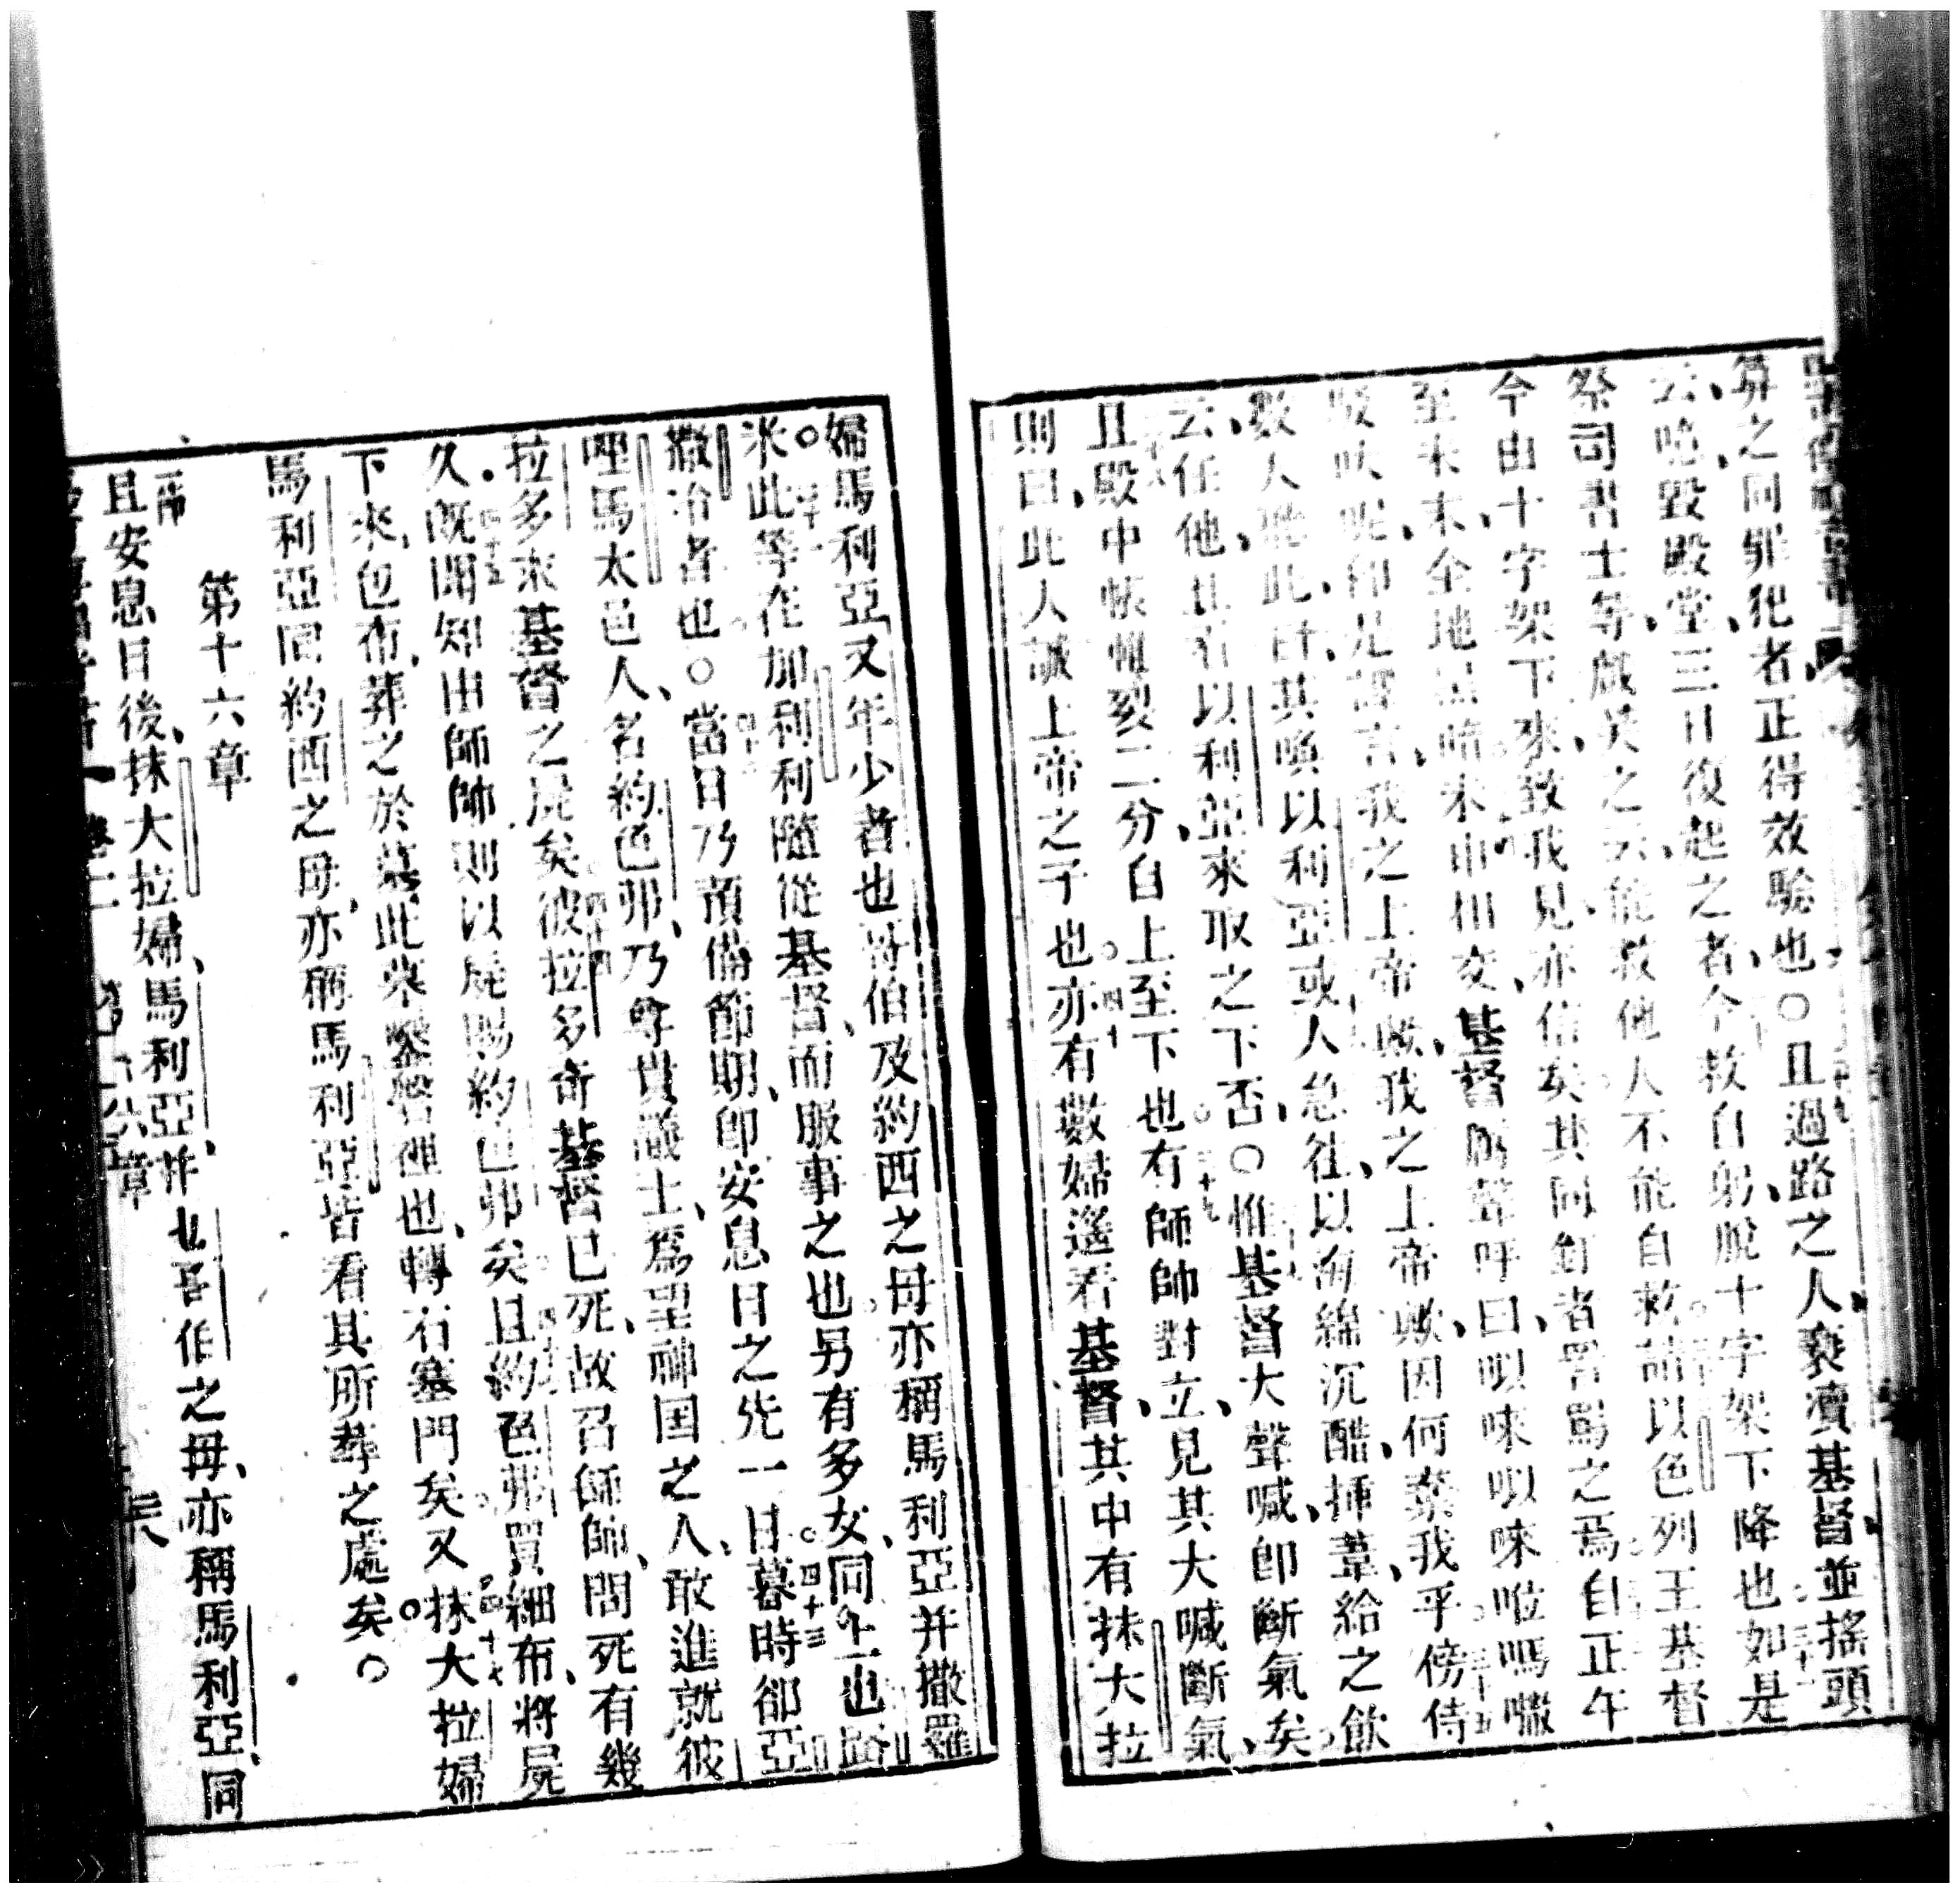 算之同罪犯者正得效驗也〇且過路之人褻瀆基督並搖頭
云噫毀殿堂三日復起之者今救自躬脫十字架下降也如是
祭司書士等戲笑之云能救他人不能自救請以色列王基督
今由十字架下來致我見亦信矣其同釘者詈罵之焉自正午
至未末全地黑暗未申相交基督厲聲呼曰唄唻唄唻啦嗎嚫
咹呔呢即是譯言我之上帝歟我之上帝歟因何棄我乎傍侍
數人聽此曰其喚以利亞或人急往以海綿沉醋揷葦給之飲
云任他且看以利亞來取之下否〇惟基督大聲喊卽斷氣矣
且殿中帳幔裂二分自上至下也有師帥對立見其大喊斷氣
則曰此人誠上帝之子也亦有數婦遙看基督其中有抹大拉
婦馬利亞又年少者也哥伯及約西之母亦稱馬利亞并撒羅
米此等在加利利隨從基督而服事之也另有多女同上也路
撒冷者也〇當日乃預備節期卽安息日之先一日暮時卻亞
哩馬太邑人名約色弗乃尊貴議士爲望神国之人敢進就彼
拉多求基督之屍矣彼拉多奇基督已死故召師帥問死有幾
久旣聞知由師帥則以屍賜約色弗矣且約色弗買細布將屍
下來包布葬之於墓此來鑿磐裡也轉石塞門矣又抹大拉婦
馬利亞同約西之母亦稱馬利亞皆看其所葬之處矣〇
第十六章
且安息日後抹大拉婦馬利亞并也哥伯之母亦稱馬利亞同